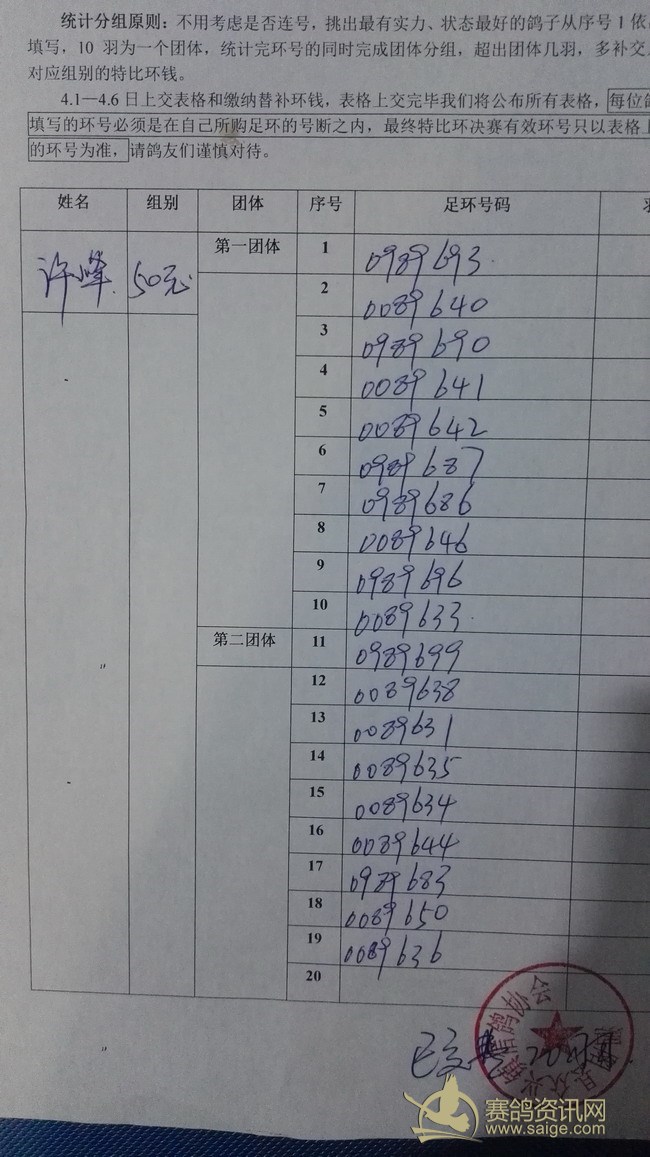 统计分组原则：不用考虑是否连号，挑出最有实力、状态最好的鸽子从序号1依
填写，10 羽为一个团体，统计完环号的同时完成团体分组，超出团体几羽，多补交
对应组别的特比环钱。
4.1—4.6 日上交表格和缴纳替补环钱，表格上交完毕我们将公布所有表格，每位
填写的环号必须是在自己所购足环的号断之内，最终特比环决赛有效环号只以表格上
的环号为准，请鸽友们谨慎对待。
姓名 组别 团体 序号 足环号码
许峰 50元 第一团体 1 0989693
2 0089640
3 0989690
4 0089641
5 0089642
6 0989687
7 0989686
8 0089646
9 0989696
10 0089633
第二团体 11 0989699
12 0089638
13 0089631
14 0089635
15 0089634
16 0089644
17 0989683
18 0089650
19 0089636
20
信鸽协会
已交
赛鸽资讯网
www.saige.com